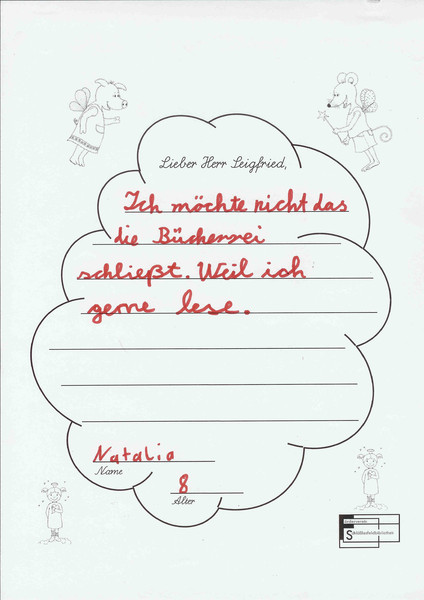 Lieber Herr Seigfried,
Ich möchte nicht das
die Bücherrei
schließt. Weil ich
gerne lese.
Natalia
Name
8
Alter